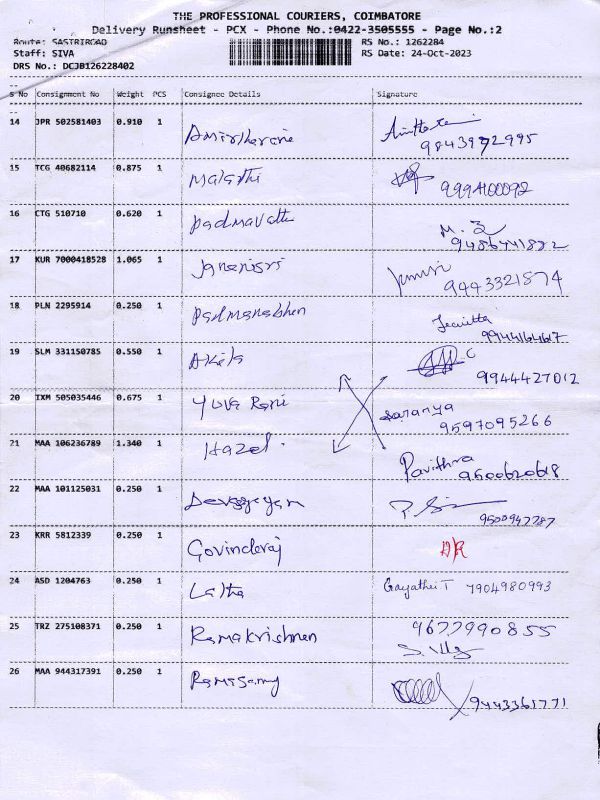 THE PROFESSIONAL COURIERS, COIMBATORE
Delivery Runsheet - PCX - Phone No.:0422-3505555 - Page No.:2
Route: SASTRIROAD RS No.: 1262284
Staff: SIVA RS Date: 24-Oct-2023
DRS No.: DCJB126228402
S No Consignment No Weight PCS Consignee Details Signature
14 JPR 502581403 0.910 1 Amirtharani
9843972995
15 TCG 40682114 0.875 1 Malathi
9994100092
16 CTG 510710 0.620 1 Padmavathi
9486441882
17 KUR 7000418528 1.065 1 Jananisri
9443321874
18 PLN 2295914 0.250 1 Padmanabhan
9944164617
19 SLM 331150785 0.550 1 Akila
9944427012
20 IXM 505035446 0.675 1 Yuva Rani Saranya
9597095266
21 MAA 106236789 1.340 1 Hazel Pavithra
9600620618
22 MAA 101125031 0.250 1
9500947787
23 KRR 5812339 0.250 1 Govindaraj DR
24 ASD 1204763 0.250 1 Latha Gayathri T 7904980993
25 TRZ 275108371 0.250 1 Ramakrishnan 9677990855
26 MAA 944317391 0.250 1 Ramasamy
9443361771